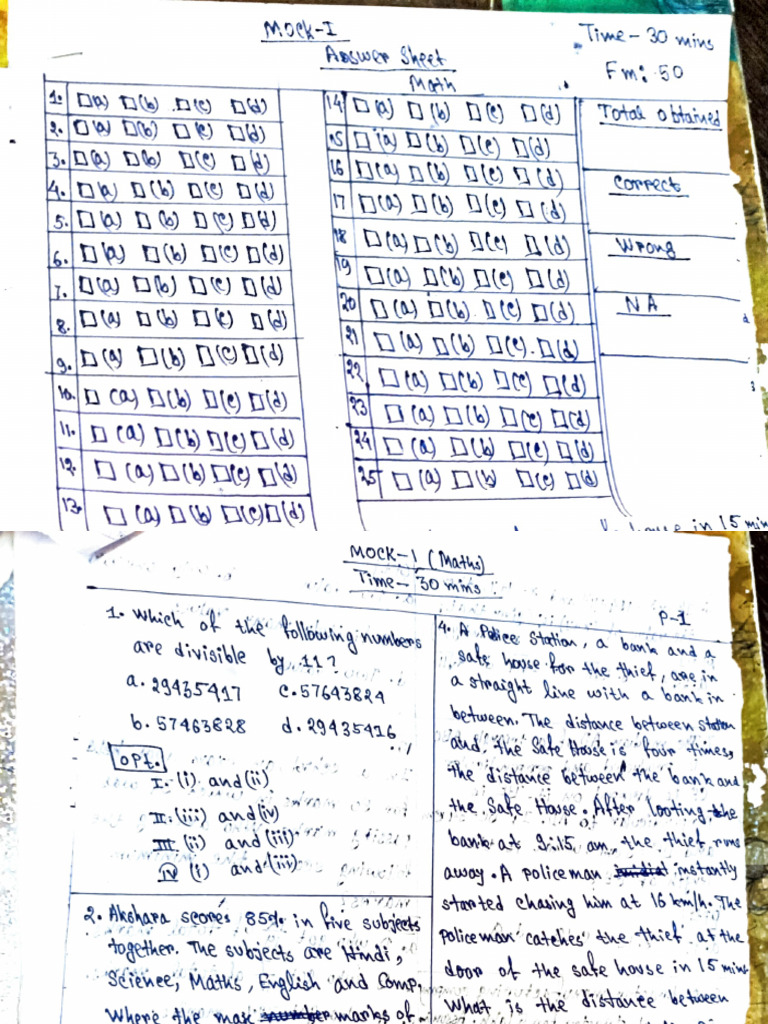 MOCK-I
Time- 30 mins
Answer Sheet
Fm: 50
Math
1. (a) (b) (c) (d)
2. (a) (b) (c) (d)
3. (a) (b) (c) (d)
4. (a) (b) (c) (d)
5. (a) (b) (c) (d)
6. (a) (b) (c) (d)
7. (a) (b) (c) (d)
8. (a) (b) (c) (d)
9. (a) (b) (c) (d)
10. (a) (b) (c) (d)
11. (a) (b) (c) (d)
12. (a) (b) (c) (d)
13. (a) (b) (c) (d)
14 (a) (b) (c) (d)
15 (a) (b) (c) (d)
16 (a) (b) (c) (d)
17 (a) (b) (c) (d)
18 (a) (b) (c) (d)
19 (a) (b) (c) (d)
20 (a) (b) (c) (d)
21 (a) (b) (c) (d)
22 (a) (b) (c) (d)
23 (a) (b) (c) (d)
24 (a) (b) (c) (d)
25 (a) (b) (c) (d)
Total obtained
Correct
Wrong
NA
house in 15 min
MOCK-1 (Maths)
Time- 30 mins
P-1
1. Which of the following numbers
are divisible by 11?
a. 29435417 c. 57643824
b. 57463828 d. 29435416
OPt.
I. (i) and (ii)
II. (iii) and (iv)
III (ii) and (iii)
IV (i) and (iii)
2. Akshara scores 85% in five subjects
together. The subjects are Hindi,
Science, Maths, English and Comp.
Where the max marks of
4. A Police Station, a bank and a
safe house for the thief, are in
a straight line with a bank in
between. The distance between station
and the Safe House is four times
the distance between the bank and
the Safe House. After looting the
bank at 9:15 am, the thief runs
away. A policeman instantly
started chasing him at 16 km/h. The
Policeman catches the thief at the
door of the safe house in 15 mins
What is the distance between